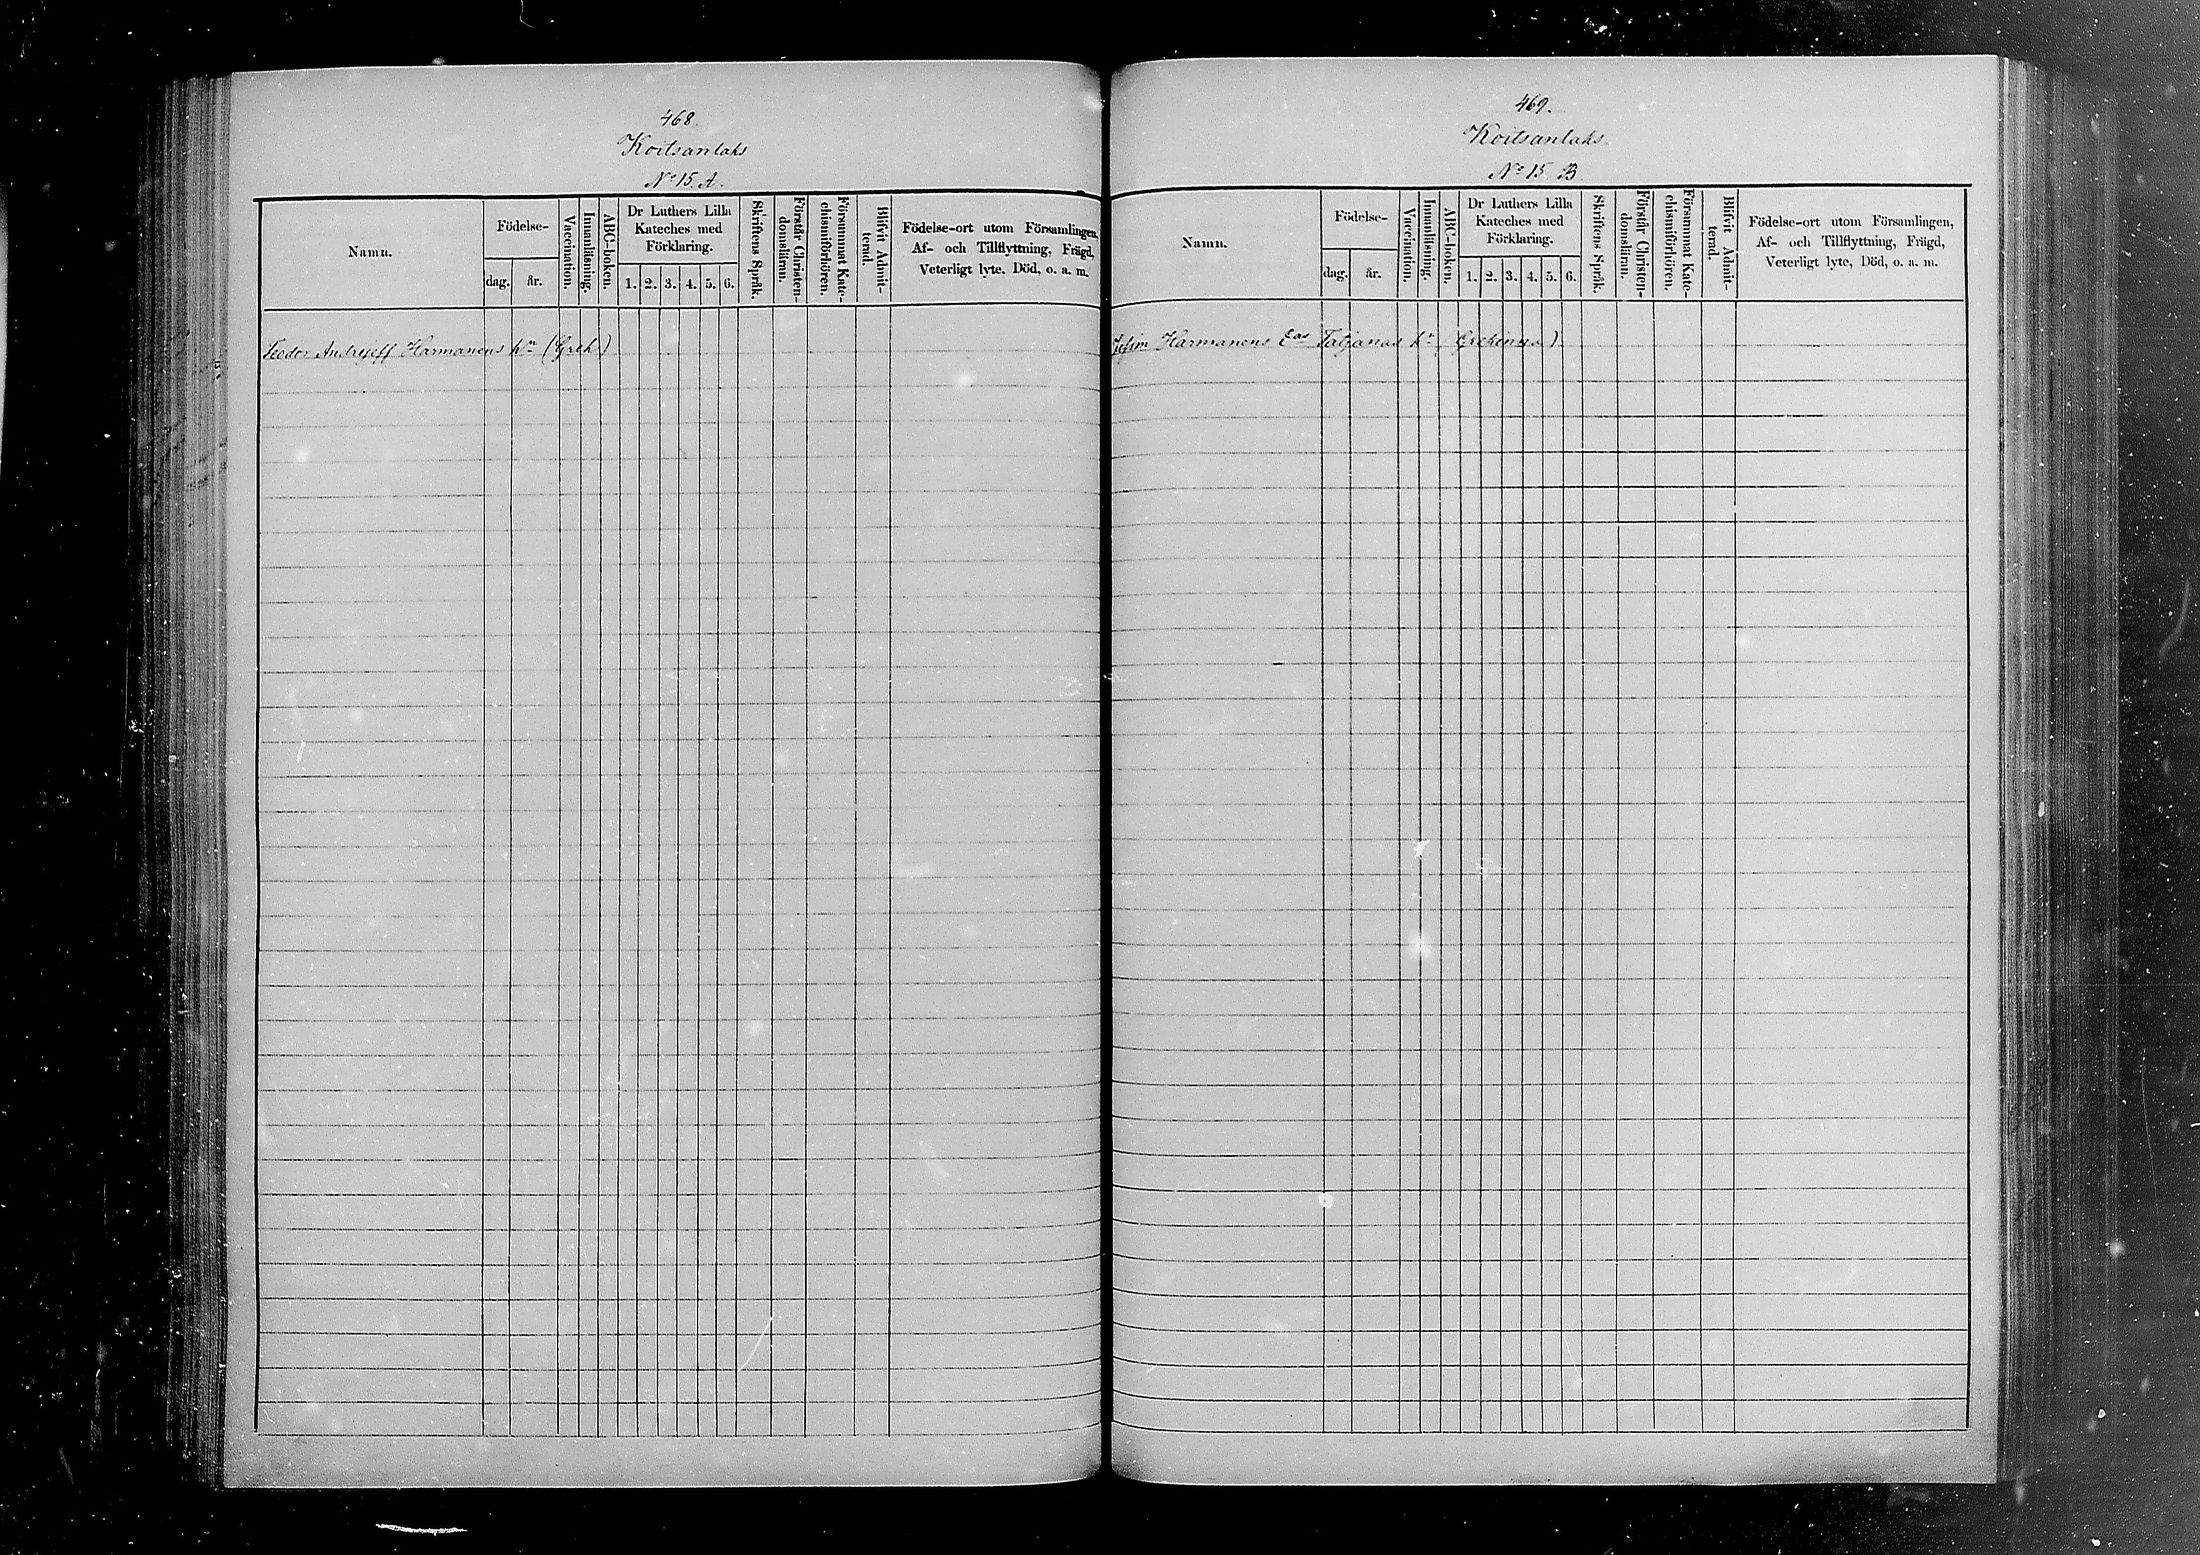 468.
Koitsanlaks
No 15. A.
Namn.
Födelse-
dag.
år.
Vaccination.
Innanläsning.
ABC-boken.
Dr Luthers Lilla
Kateches med
Förklaring.
1. 2. 3. 4. 5. 6.
Skriftens Språk.
Förstår Christen-
domsläran.
Försummat Kate-
chismiförhören.
Blifvit Admit-
terad.
Födelse-ort utom Församlingen,
Af- och Tillflyttning, Frägd,
Veterligt lyte, Död, o. a. m.
Feedor Andrejeff Harmanens hn (Grek)
469.
Koitsanlaks.
No 15 B
Namn.
Födelse-
dag.
år.
Vaccination.
Innanläsning.
ABC-boken.
Dr Luthers Lilla
Kateches med
Förklaring.
1. 2. 3. 4. 5. 6.
Skriftens Språk.
Förstår Christen-
domsläran.
Försummat Kate-
chismiförhören.
Blifvit Admit-
terad.
Födelse-ort utom Församlingen,
Af- och Tillflyttning, Frägd,
Veterligt lyte, Död, o. a. m.
Jefim Harmanens Eas Tatjanas hn (Grekinna)